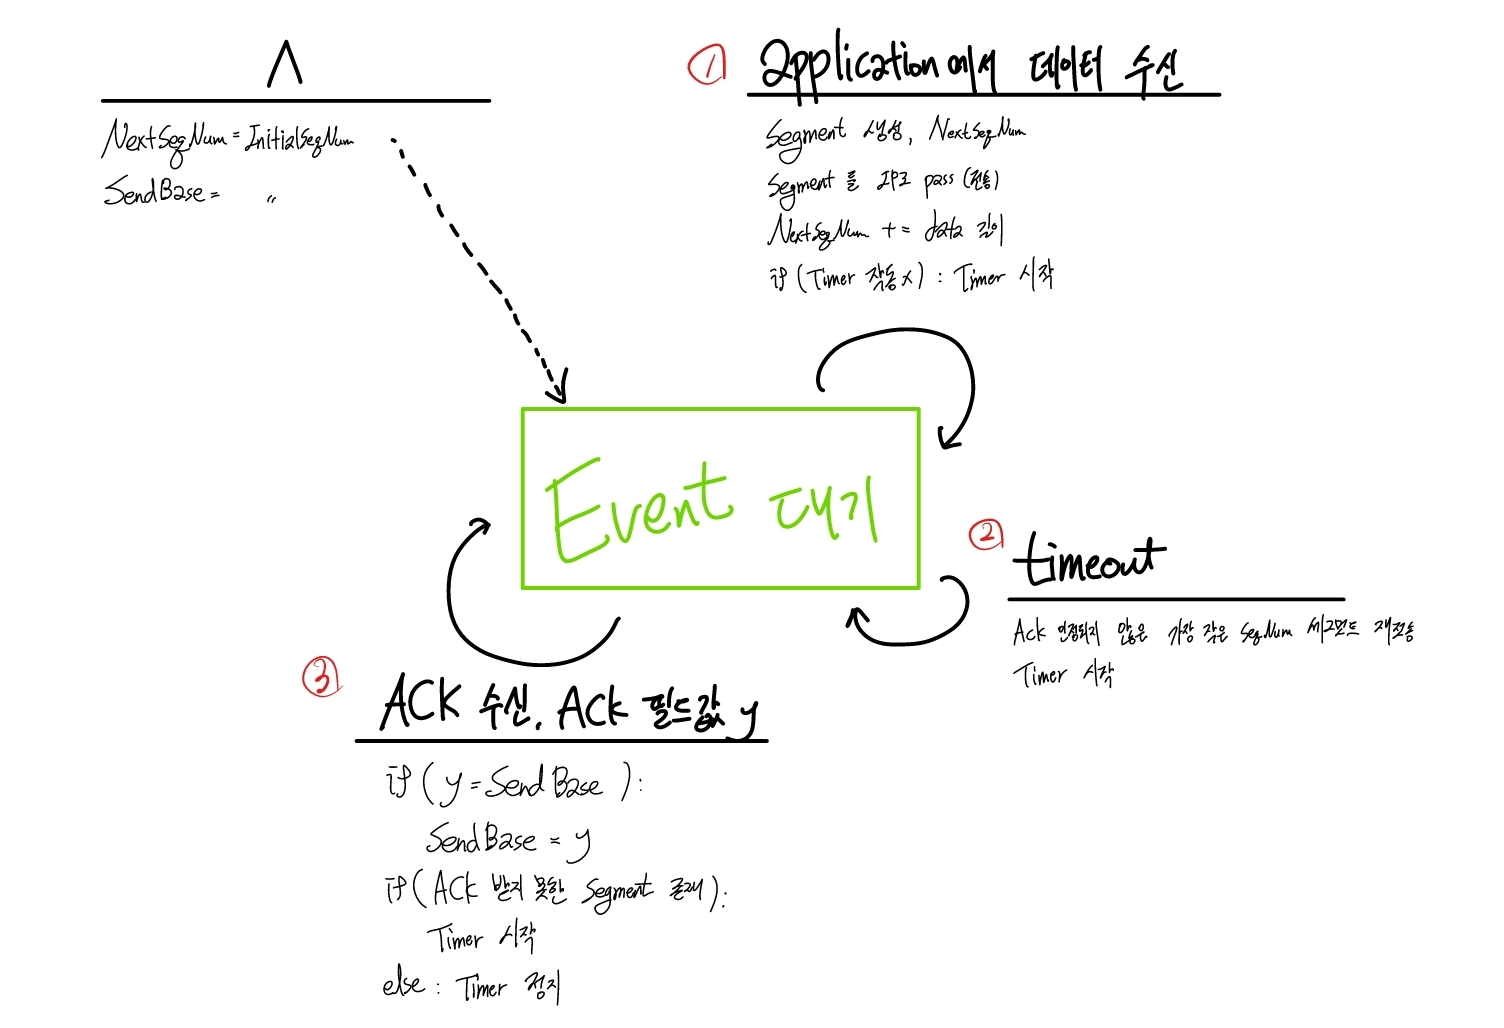 Λ
NextSeqNum = InitialSeqNum
SendBase = 〃
① application에서 데이터 수신
Segment 생성, NextSeqNum
Segment를 IP로 pass (전송)
NextSeqNum += data 길이
if (Timer 작동x) : Timer 시작
Event 대기
② timeout
Ack 인정되지 않은 가장 작은 SeqNum 세그먼트 재전송
Timer 시작
③ ACK 수신, ACK 필드값 y
if ( y = SendBase ) :
SendBase = y
if (ACK 받지 못한 Segment 존재) :
Timer 시작
else : Timer 정지